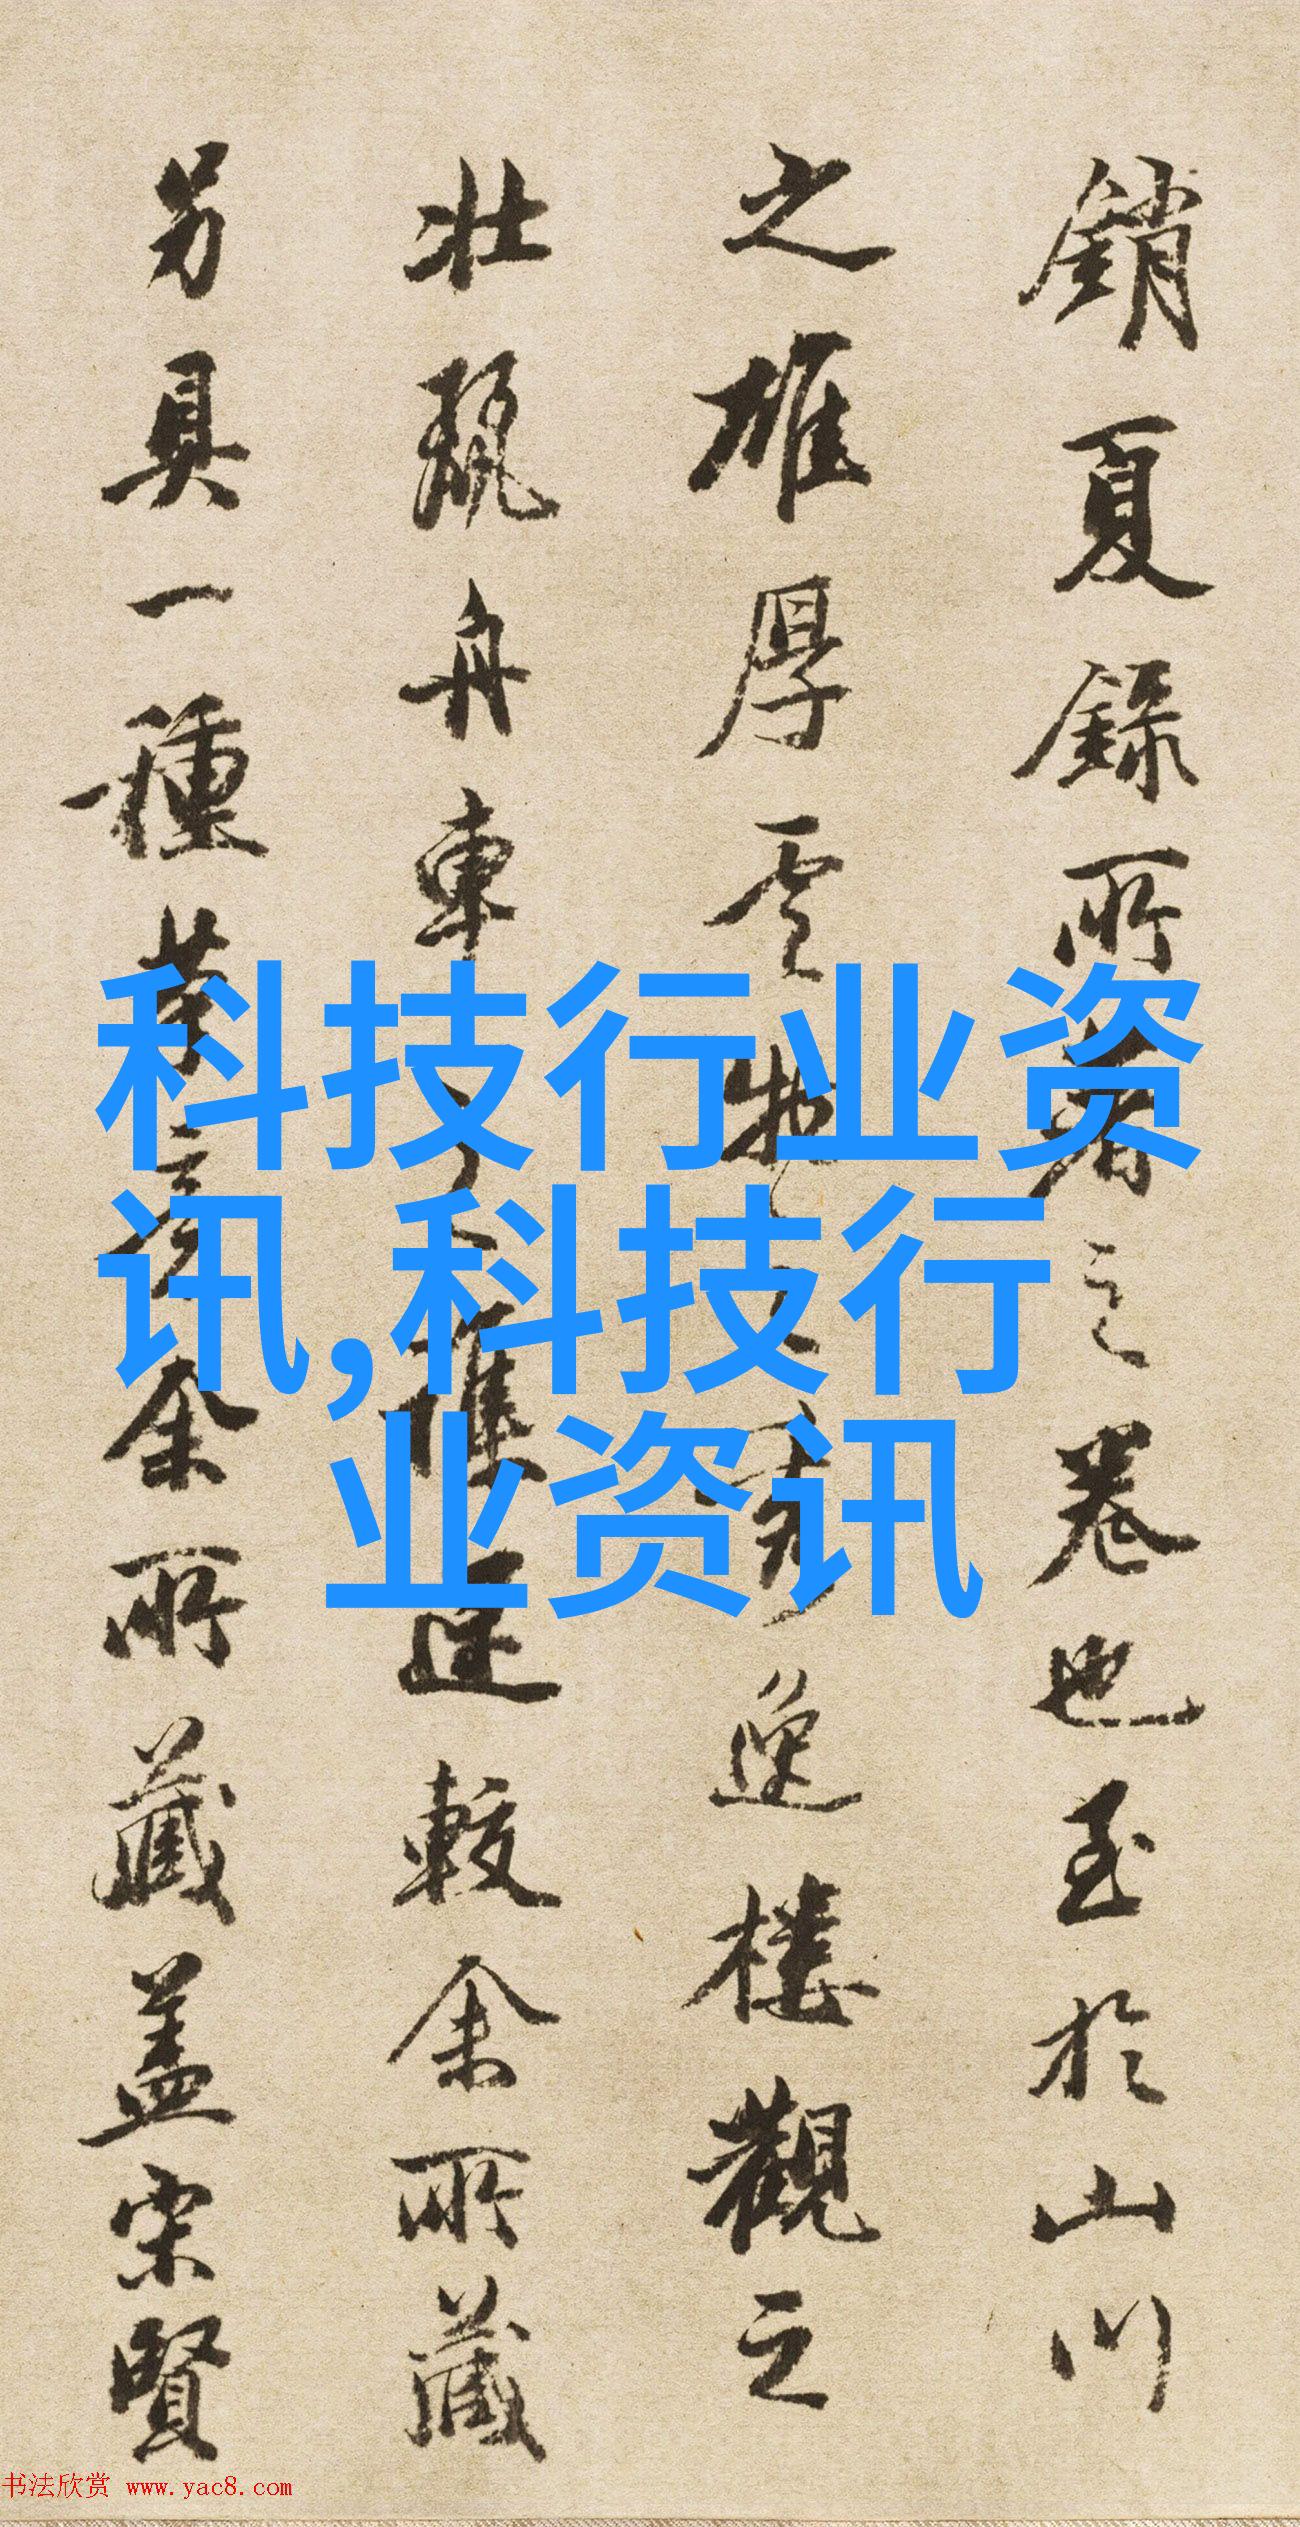 科技行业资
讯,科技行
业资讯
銷夏録所之卷也至於山川
之雄厚雲物逸樓觀之
壯麗舟車較余所藏
另具一種余所藏蓋宋賢
书法欣赏 www.yac8.com